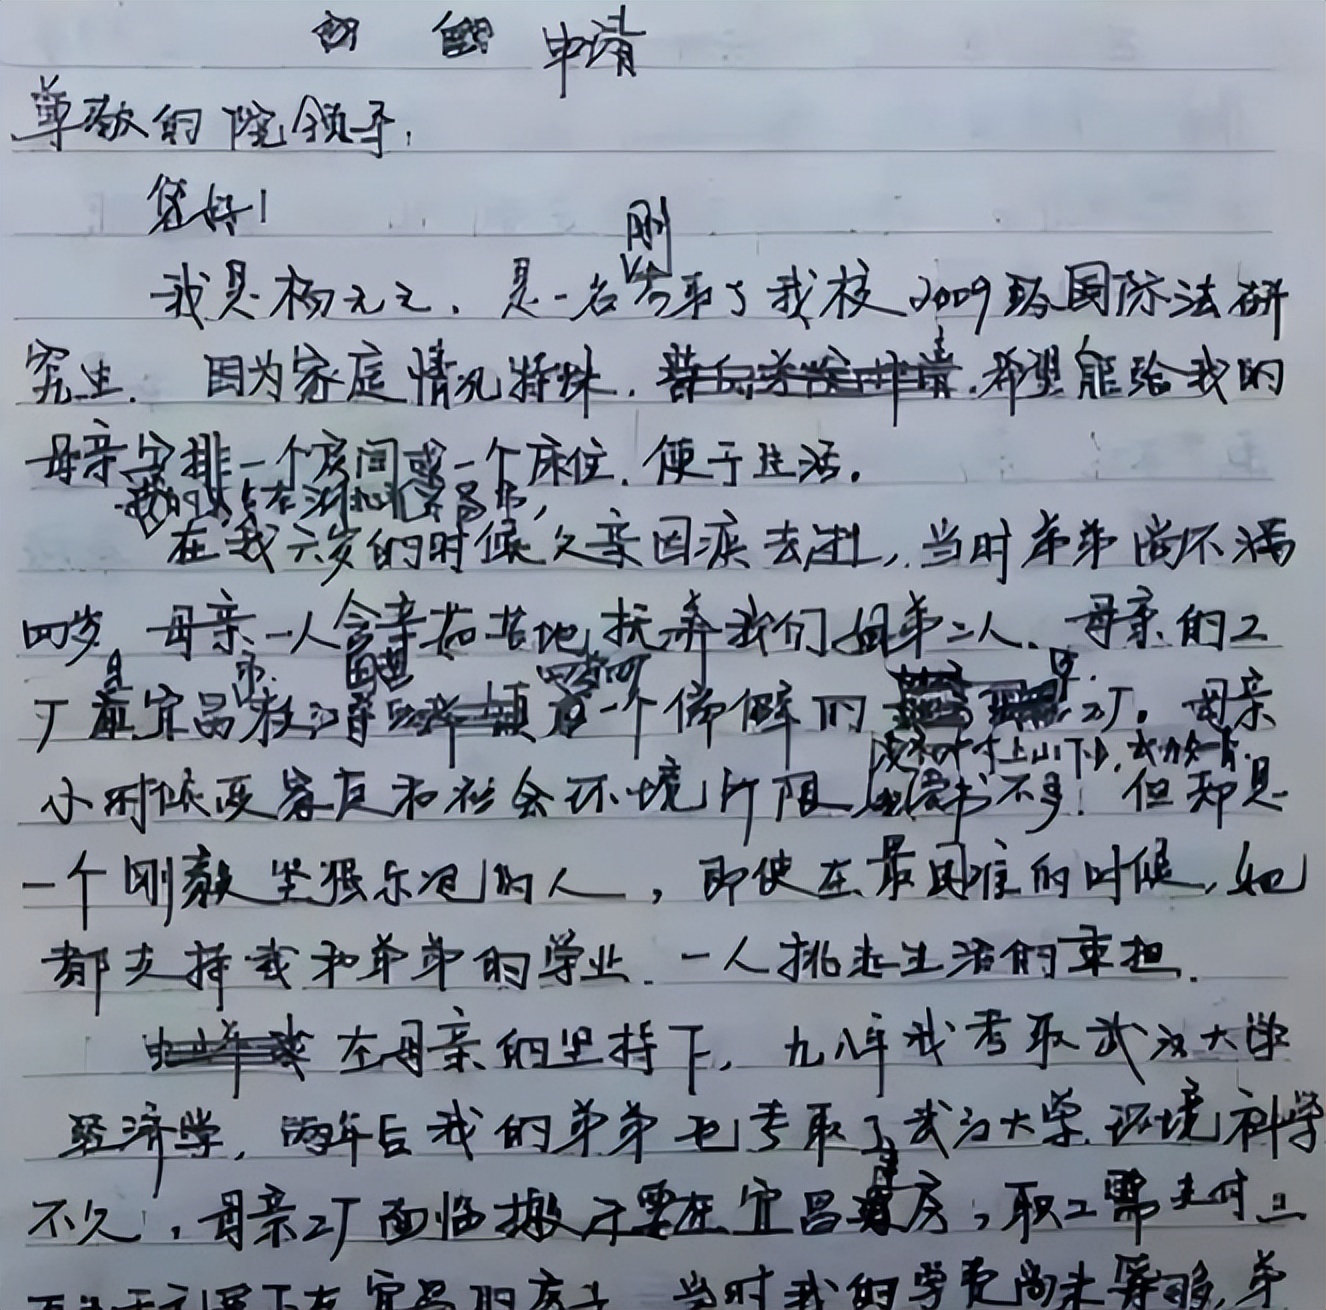 申请
尊敬的院领导:
您好!
刚
我是杨元元,是一名考取了我校2009级国际法研
究生.因为家庭情况特殊.希望能给我的
母亲安排一个房间或一个床位,便于生活。
我的家在湖北宜昌市,
在我六岁的时候父亲因病去逝,当时弟弟尚不满
四岁.母亲一人含辛茹苦地抚养我们姐弟二人.母亲的工
厂是宜昌市枝江一个偏僻的工厂。母亲
小时候受家庭和社会环境所限,读书不多!但却是
一个刚毅坚强乐观的人,即使在最困难的时候,她
都支持我和弟弟的学业.一人挑起生活的重担.
在母亲的坚持下,九八年我考取武汉大学
经济学,两年后我的弟弟也考取了武汉大学环境科学
不久,母亲工厂面临搬迁要在宜昌建房,职工需支付
宜昌的房子.当时我的学费尚未筹够,弟